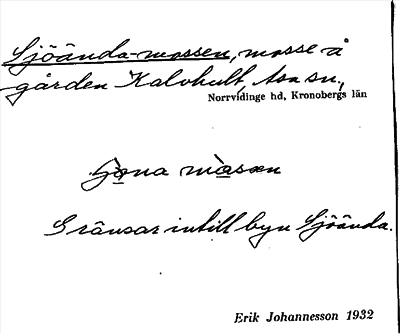 Sjöända-mossen, mosse å
gården Kalvhult, Asa sn.,
Norrvidinge hd, Kronobergs län
mòsen
Gränsar intill byn Sjöända.
Erik Johannesson 1932